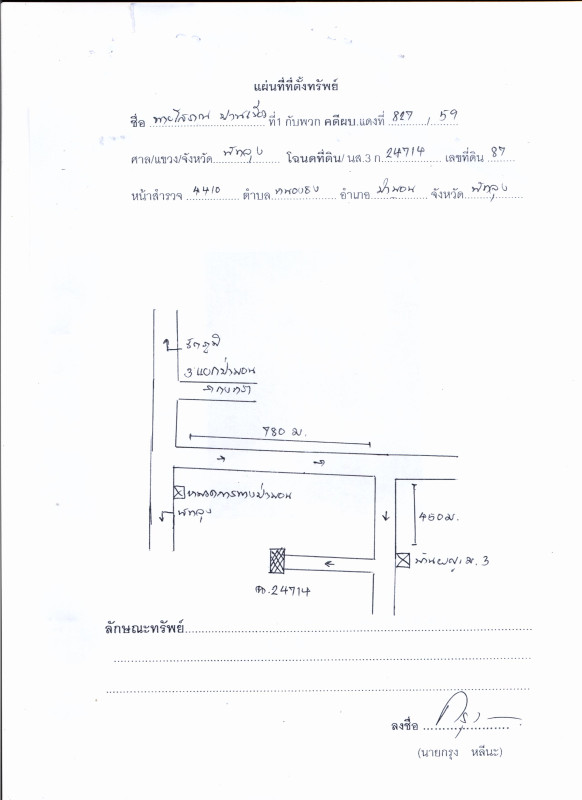 แผนที่ที่ตั้งทรัพย์
ชื่อ ที่1 กับพวก คดีผบ.แดงที่ 827 / 59
ศาล/แขวง/จังหวัด พัทลุง โฉนดที่ดิน/นส.3 ก. 24714 เลขที่ดิน 87
หน้าสำรวจ 4410 ตำบล หนองธง อำเภอ ป่าบอน จังหวัด พัทลุง
รัตภูมิ
3 แยกป่าบอน
กงหรา
780 ม.
หมวดการทางป่าบอน
พัทลุง
450 ม.
บ้านผญ.ม.3
ฉ.24714
ลักษณะทรัพย์
ลงชื่อ
(นายกรุง หลีนะ)